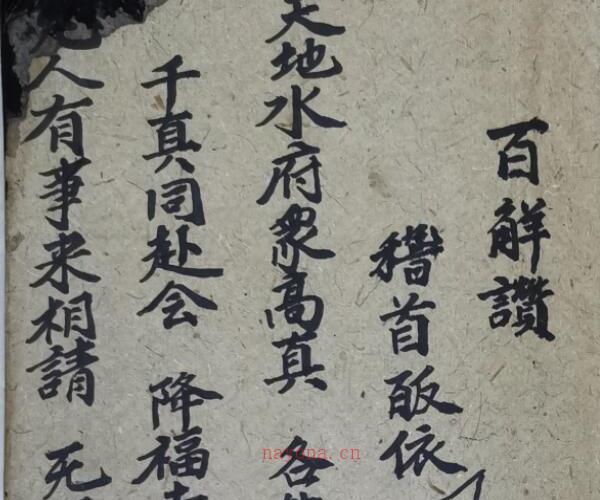 百解讚
稽首皈依
天地水府衆高真 各
千真同赴会 降福
人有事来相請 死
nayona.cn